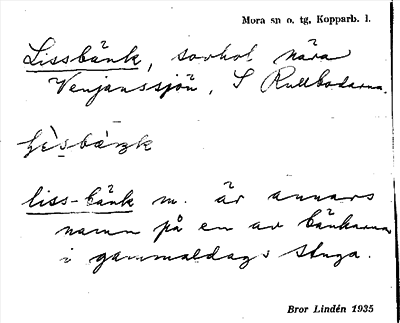 Mora sn o. tg, Kopparb. l.
Lissbänk, torkpl. nära
Venjanssjön, S Rullbodarna.
liss-bänk m. är annars
namn på en av bänkarna
i gammaldags stuga.
Bror Lindén 1935